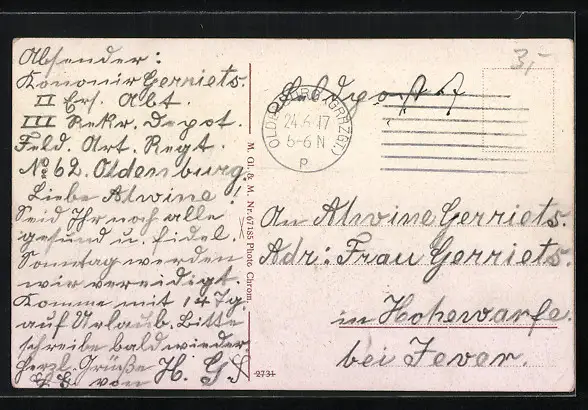 Absender:
Kanonir Gerriets.
II Ers. Abt.
III Rekr. Depot.
Feld. Art. Regt.
No 62. Oldenburg.
Liebe Alwine
Seid Ihr noch alle
gesund u. fidel.
Sonntag werden
wir vereidigt.
Komme mit 14 Tg.
auf Urlaub. Bitte
schreibe bald wieder
Herzl. Grüße
von H. G.
M. Gl., & M. Nr. 67185 Photo Chrom.
2731
3,-
Feldpost
OLDENBURG (GRHZGT.)
24.6.17
5-6 N
P
An Alwine Gerriets.
Adr: Frau Gerriets.
in Hohewarfe.
bei Jever.